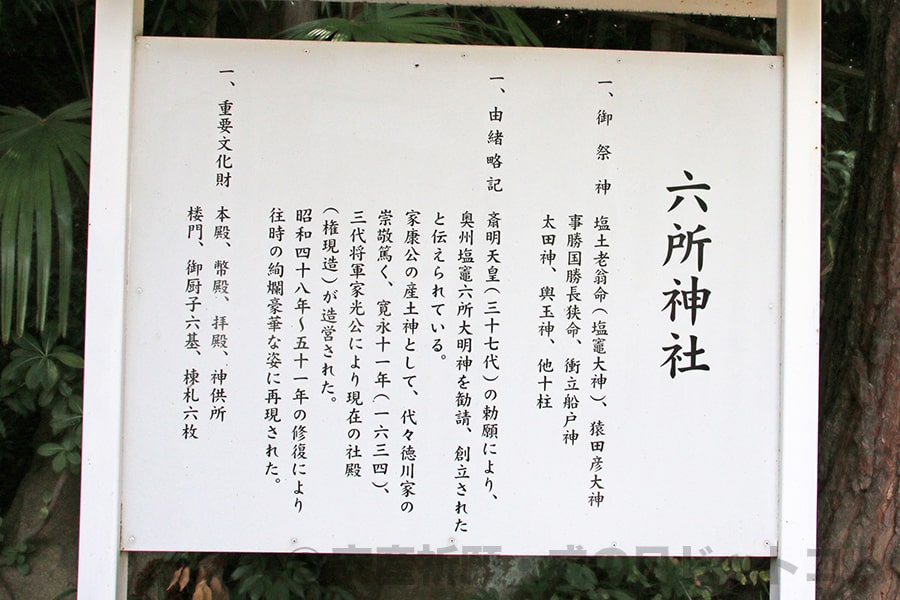 六所神社
一、御祭神 塩土老翁命(塩竈大神)、猿田彦大神
事勝国勝長狭命、衝立船戸神
太田神、興玉神、他十柱
一、由緒略記 斎明天皇(三十七代)の勅願により、
奥州塩竈六所大明神を勧請、創立された
と伝えられている。
家康公の産土神として、代々徳川家の
崇敬篤く、寛永十一年(一六三四)、
三代将軍家光公により現在の社殿
(権現造)が造営された。
昭和四十八年〜五十一年の修復により
往時の絢爛豪華な姿に再現された。
一、重要文化財 本殿、幣殿、拝殿、神供所
楼門、御厨子六基、棟札六枚